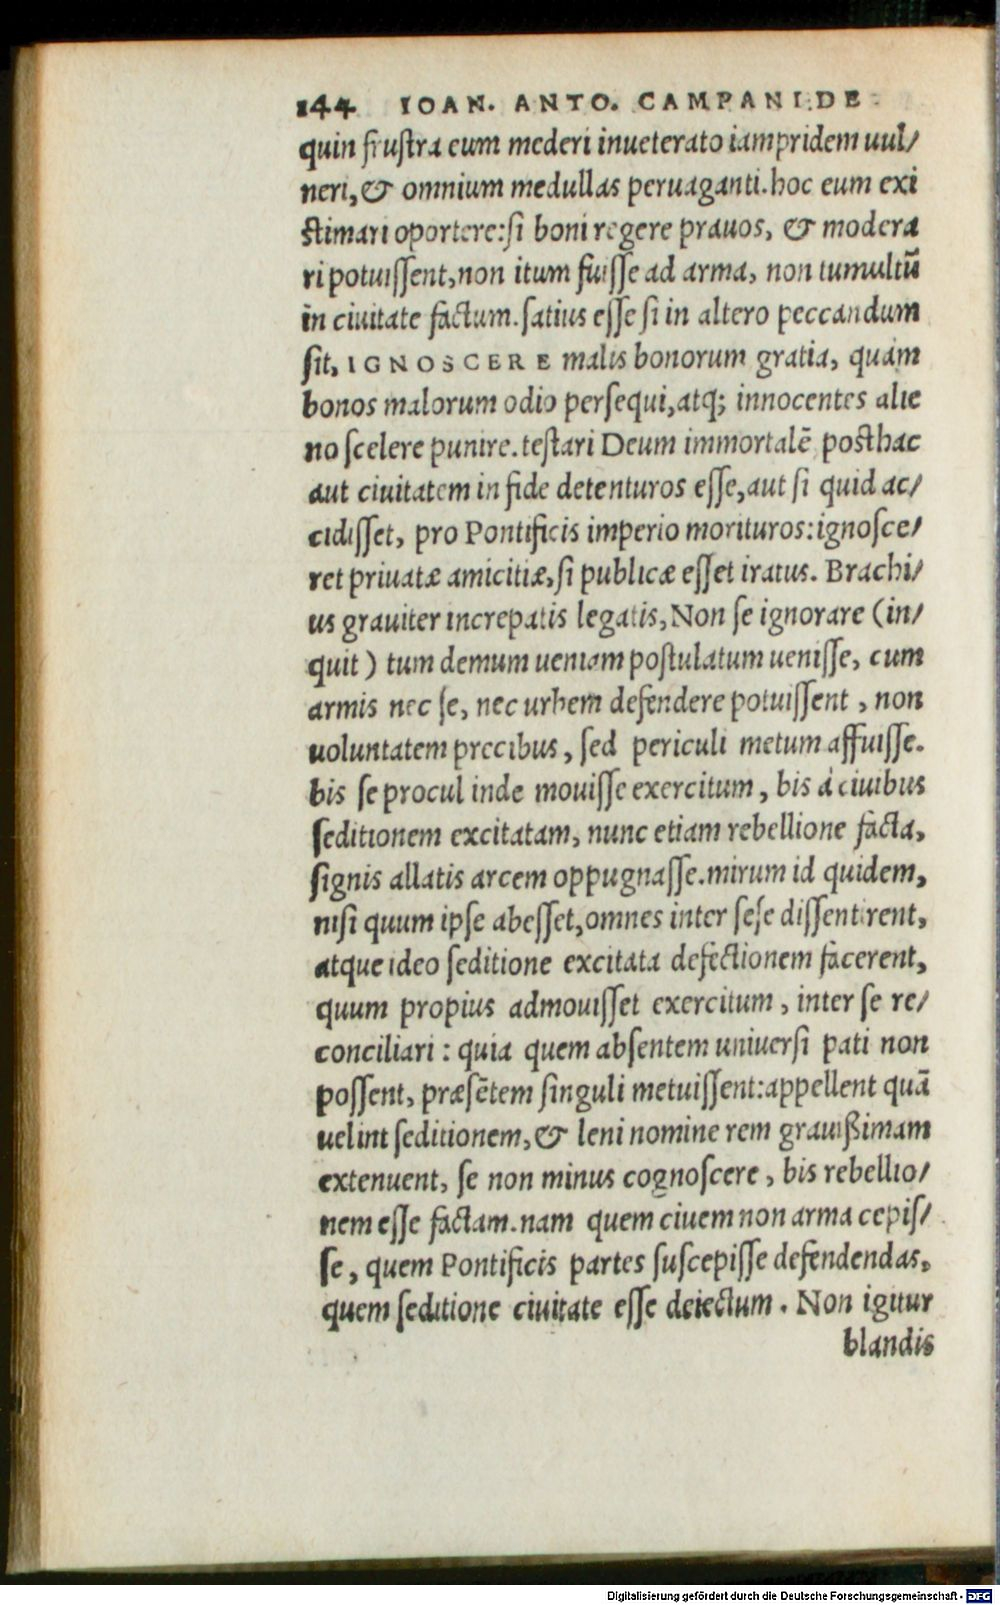 144 IOAN. ANTO. CAMPANI DE
quin frustra eum mederi inueterato iampridem uul/
neri, & omnium medullas peruaganti. hoc eum exi
stimari oportere: si boni regere prauos, & modera
ri potuissent, non itum fuisse ad arma, non tumultū
in ciuitate factum. satius esse si in altero peccandum
sit, IGNOSCERE malis bonorum gratia, quàm
bonos malorum odio persequi, atq; innocentes alie
no scelere punire. testari Deum immortalē posthac
aut ciuitatem in fide detenturos esse, aut si quid ac/
cidisset, pro Pontificis imperio morituros: ignosce/
ret priuatæ amicitiæ, si publicæ esset iratus. Brachi/
us grauiter increpatis legatis, Non se ignorare (in/
quit) tum demum ueniam postulatum uenisse, cum
armis nec se, nec urbem defendere potuissent, non
uoluntatem precibus, sed periculi metum affuisse.
bis se procul inde mouisse exercitum, bis à ciuibus
seditionem excitatam, nunc etiam rebellione facta,
signis allatis arcem oppugnasse. mirum id quidem,
nisi quum ipse abesset, omnes inter sese dissentirent,
atque ideo seditione excitata defectionem facerent,
quum propius admouisset exercitum, inter se re/
conciliari: quia quem absentem uniuersi pati non
possent, præsētem singuli metuissent: appellent quā
uelint seditionem, & leni nomine rem grauißimam
extenuent, se non minus cognoscere, bis rebellio/
nem esse factam. nam quem ciuem non arma cepis/
se, quem Pontificis partes suscepisse defendendas,
quem seditione ciuitate esse deiectum. Non igitur
blandis
Digitalisierung gefördert durch die Deutsche Forschungsgemeinschaft - DFG